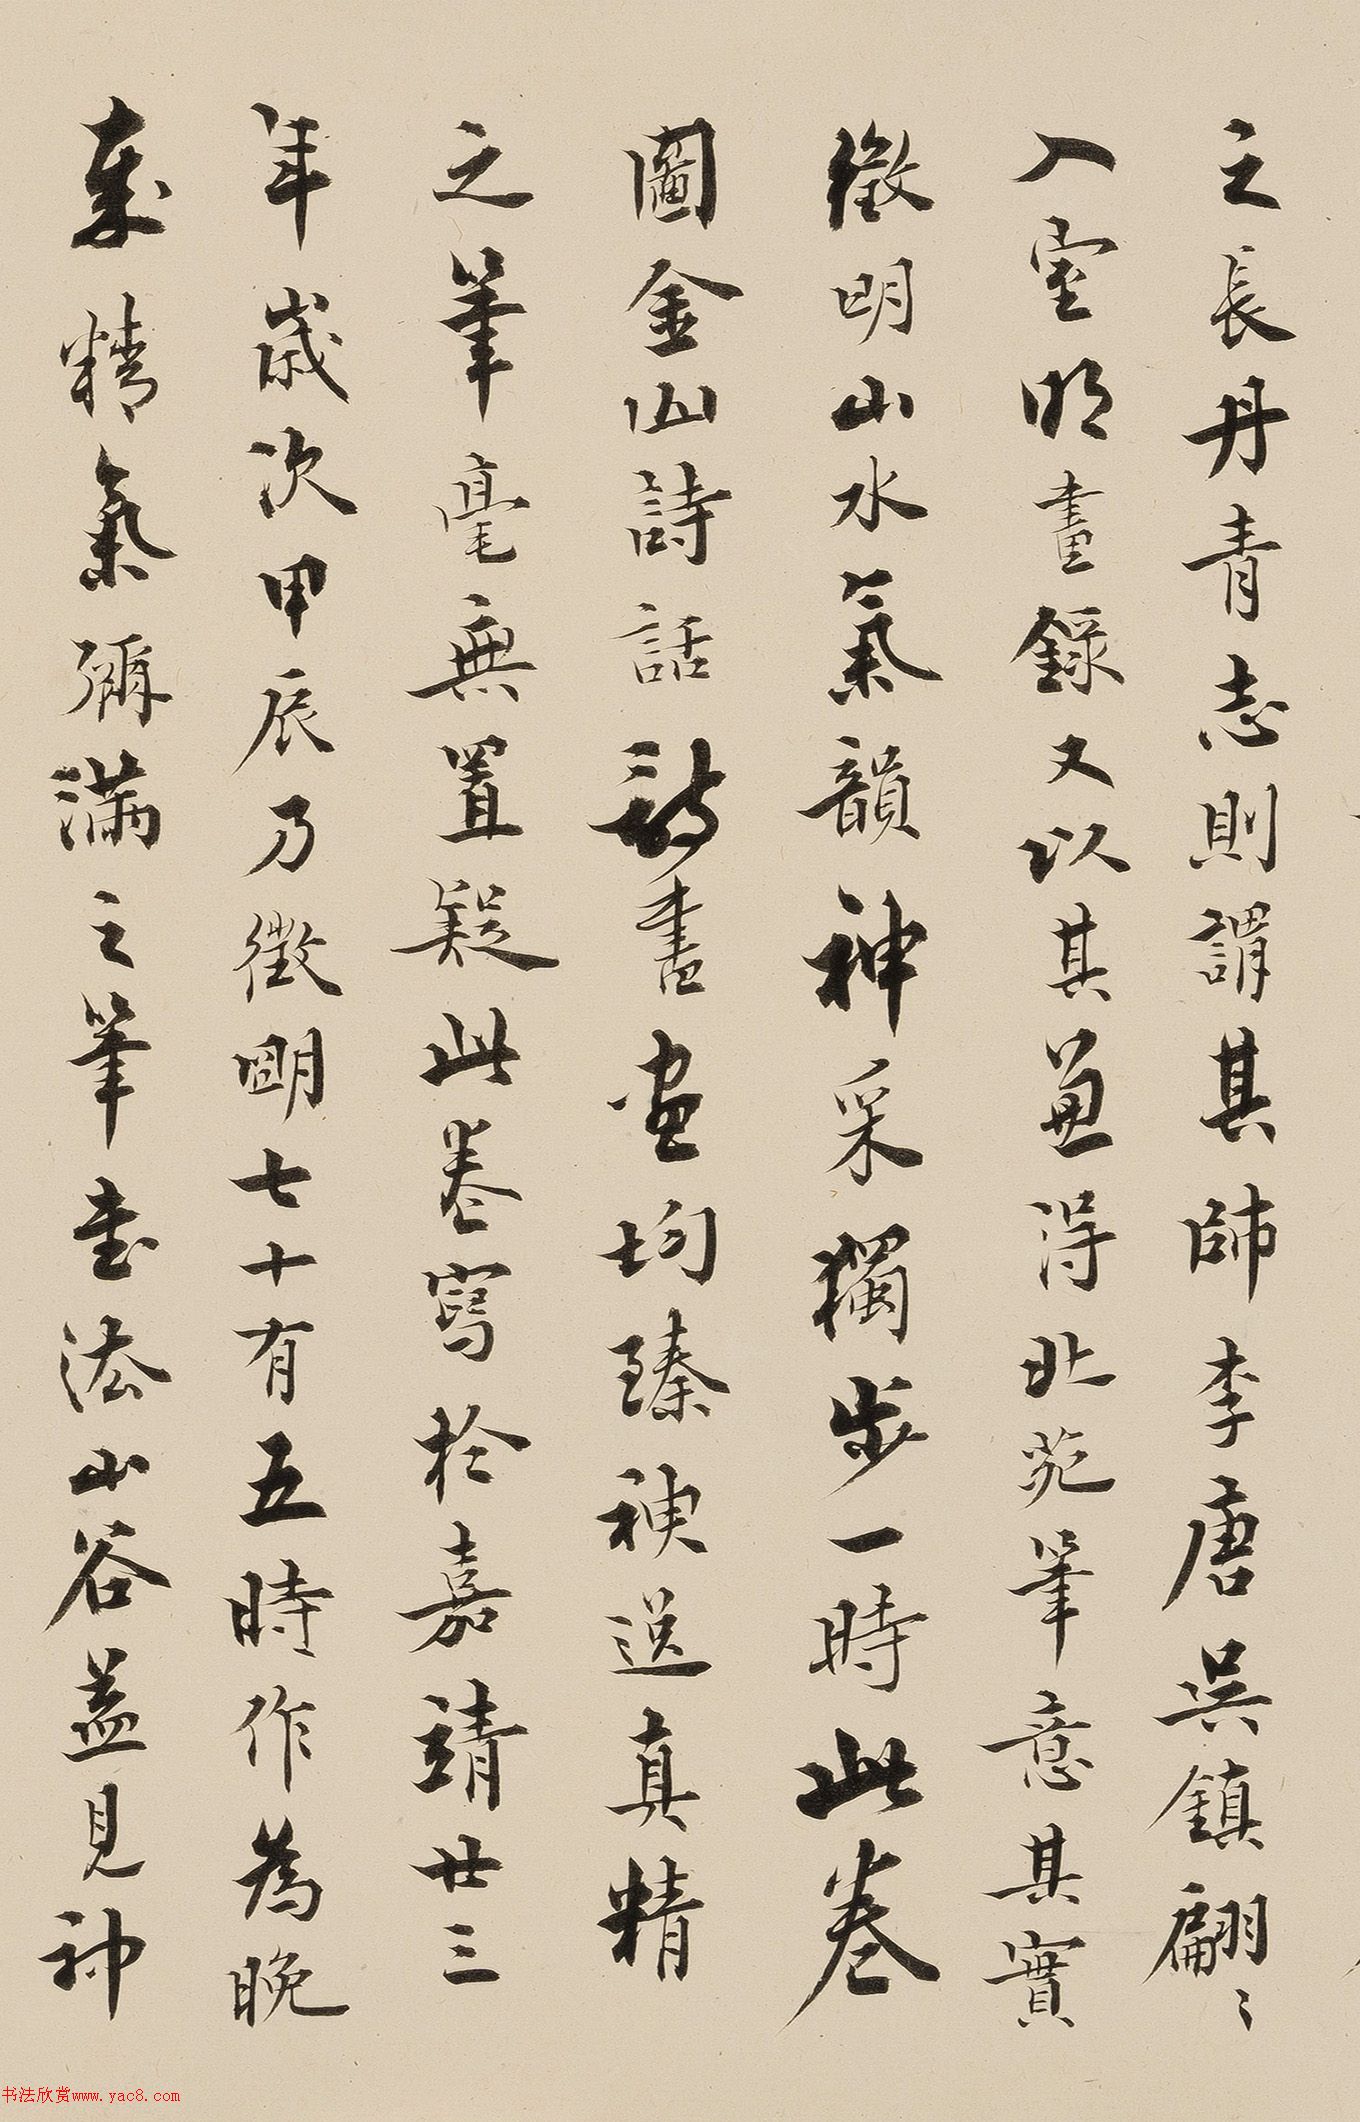 之長丹青志則謂其師李唐吳鎮翩〻
入室明畫錄又以其兼得北苑筆意其實
徵明山水氣韻神采獨步一時此卷
圖金山詩話詩書畫均臻神逸真精
之筆毫無置疑此卷寫於嘉靖廿三
年歲次甲辰乃徵明七十有五時作為晚
年精氣彌滿之筆書法山谷益見神
书法欣赏www.yac8.com